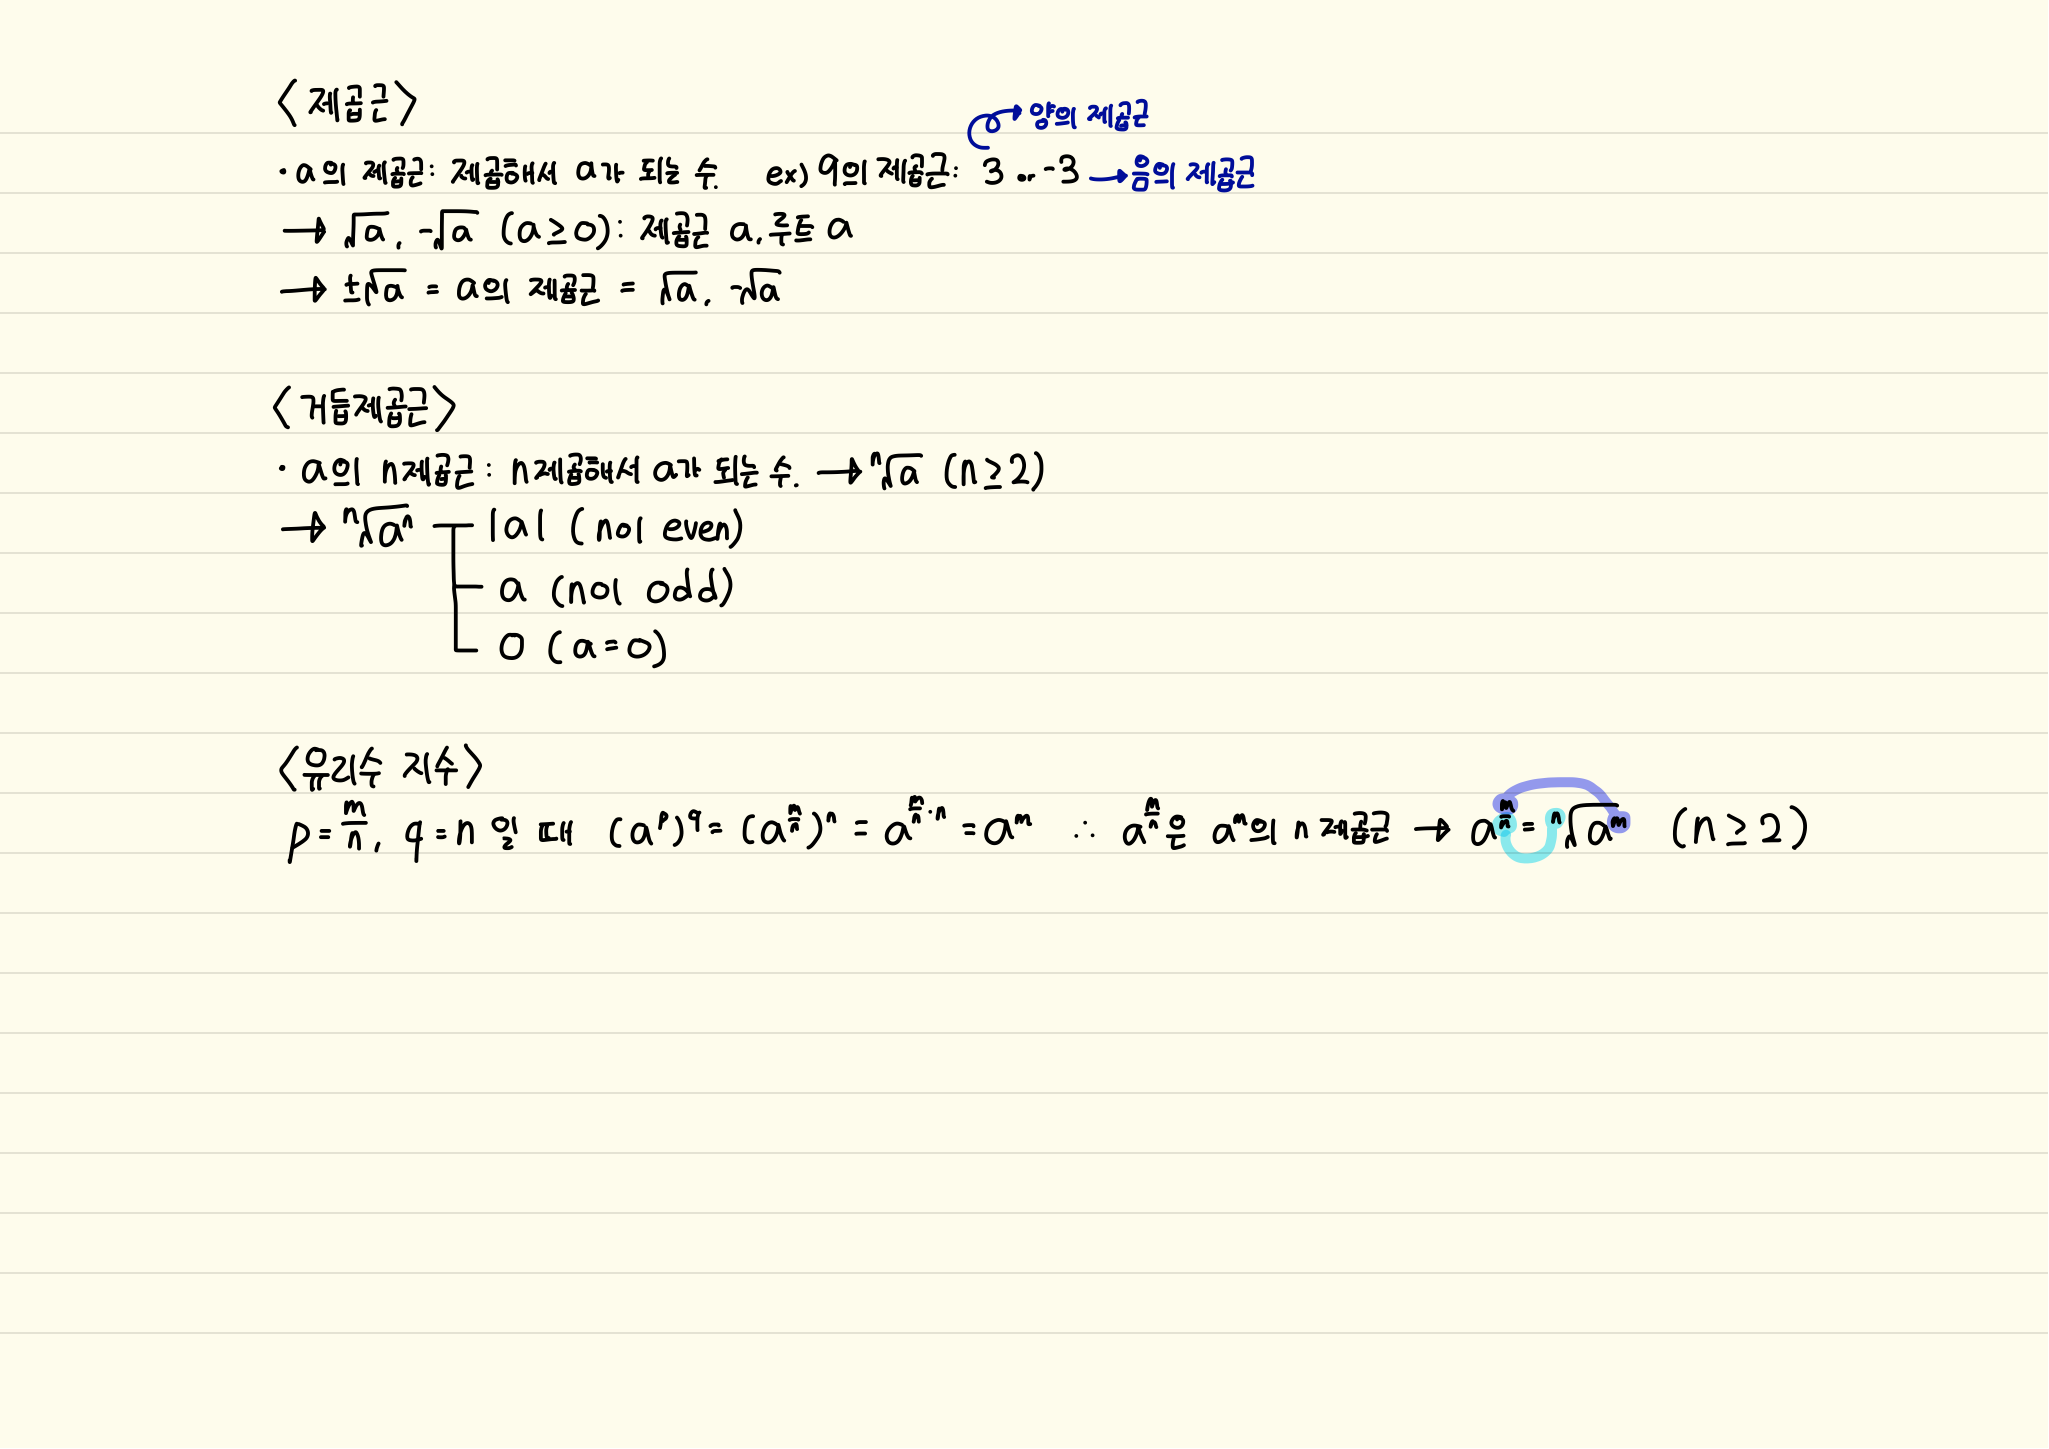 <제곱근>
양의 제곱근
· a의 제곱근: 제곱해서 a가 되는 수. ex) 9의 제곱근: 3 or -3 → 음의 제곱근
→ √a, -√a (a ≥ 0): 제곱근 a, 루트 a
→ ±√a = a의 제곱근 = √a, -√a
<거듭제곱근>
· a의 n제곱근: n제곱해서 a가 되는 수. → ⁿ√a (n ≥ 2)
→ ⁿ√aⁿ |a| (n이 even)
a (n이 odd)
0 (a=0)
<유리수 지수>
p = m/n, q = n 일 때 (a^p)^q = (a^(m/n))^n = a^(m/n·n) = a^m ∴ a^(m/n)은 a^m의 n제곱근 → a^(m/n) = ⁿ√a^m (n ≥ 2)